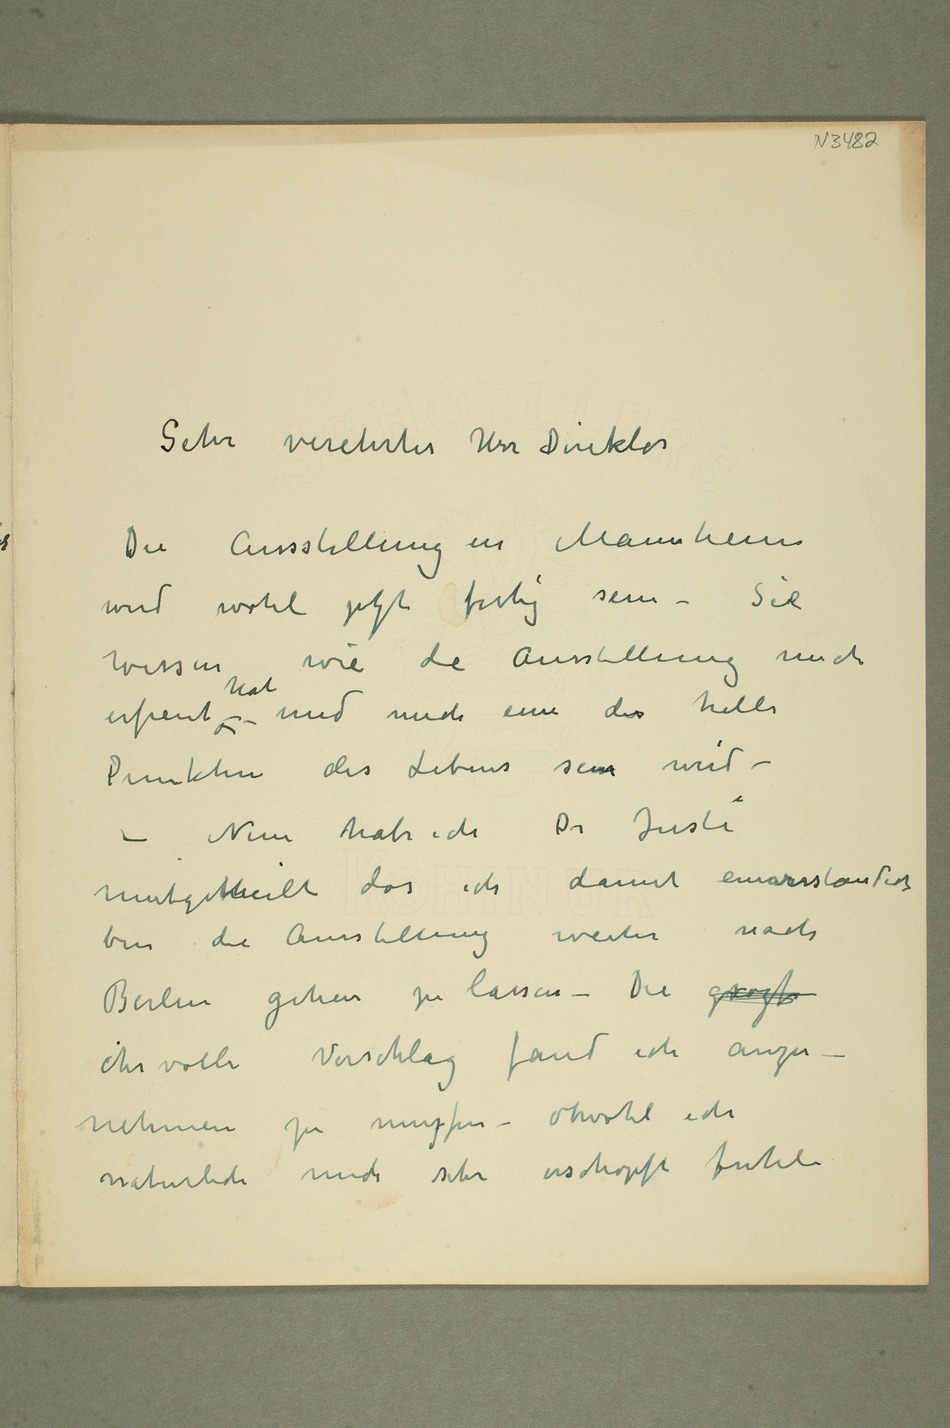 N3482
Sehr verehrter Herr Direktor
Die Ausstellung in Mannheim
wird wohl jetzt fertig sein – Sie
wissen wie die Ausstellung mich
erfreut hat – und mich eine der helle
Punkten des Lebens sein wird –
– Nun habe ich Dr Justi
mitgetheilt das ich damit einverstanden
bin die Ausstellung weiter nach
Berlin gehen zu lassen – Die
ehrvolle Vorschlag fand ich anzu –
nehmen zu müssen – obwohl ich
naturlich mich sehr erschöpft fuhle